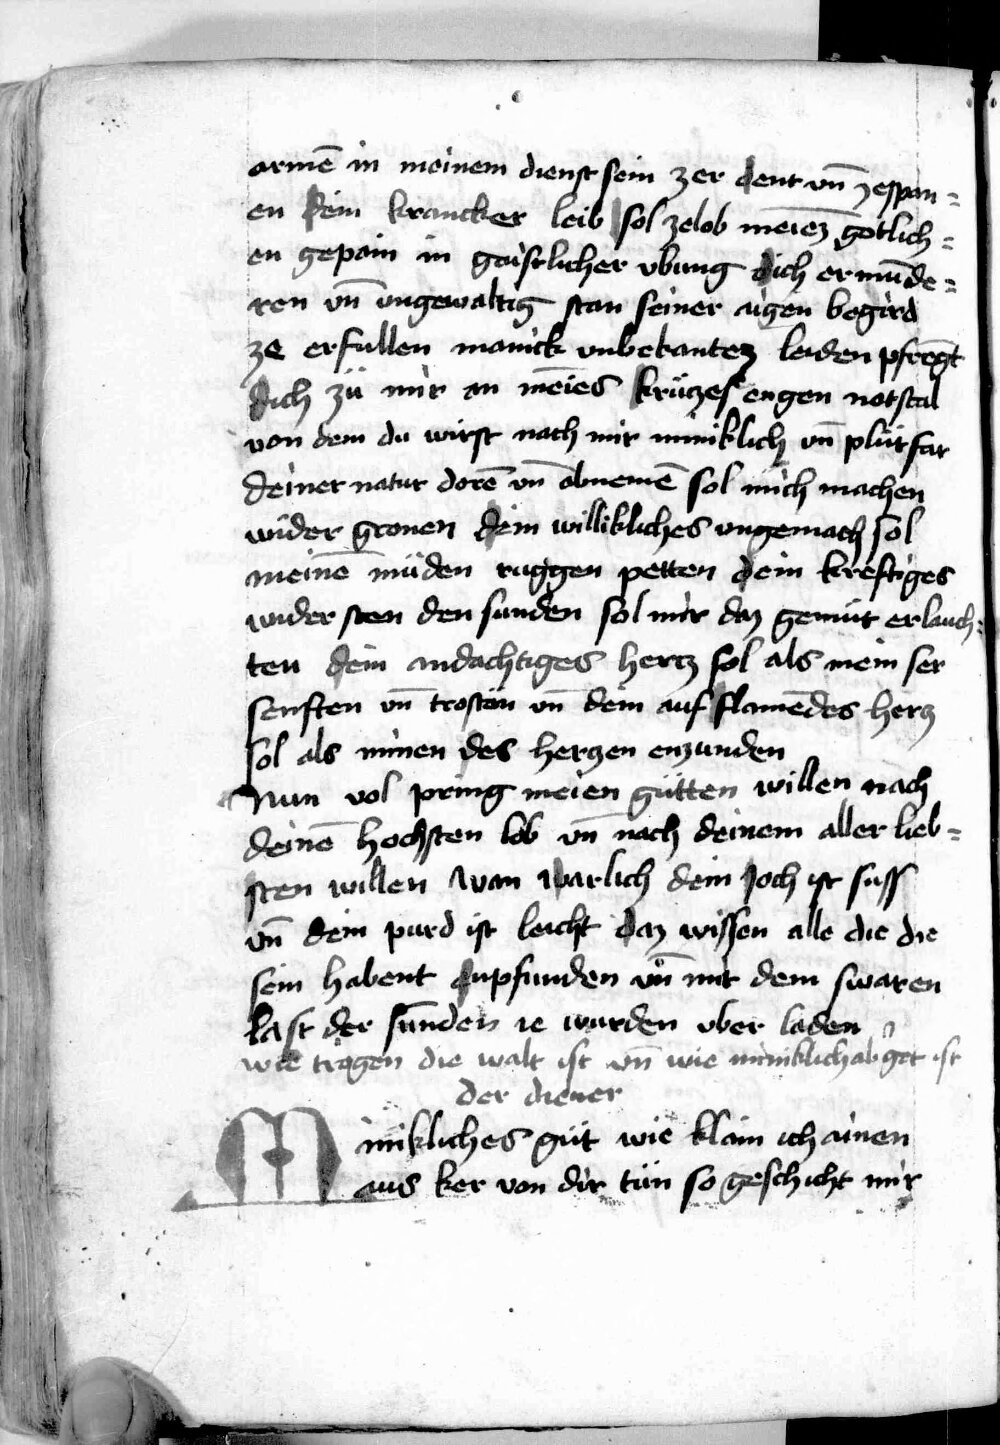 armē in meinem dienst sein zer dent vn̄ zespan=
en dein krancker leib sol zelob meiēz gotlich=
en gepain in gaistlicher vbung dich ermūde=
ren vn̄ vngewaltig stan seiner aigen begird
ze erfullen manick vnbekantez leiden pfrēgt
dich zü mir an mēies krüczes engen notstal
von dem du wirst nach mir miniklich vn̄ plüt far
deiner natur dorē vn̄ abnemē sol mich machen
wider gronen dein willikliches vngemach sol
meinē müden ruggen petten dein kreftiges
wider sten den sunden sol mir daz gemüt erlauch=
ten dein andachtiges hercz sol als mein ser
senften vn̄ trostön vn̄ dein auf flamēdes herz
sol als minen des herzen enzunden
Nun vol pring meien gütten willen nach
deinē hochsten lob vn̄ nach deinem aller lieb=
sten willen wan warlich dein joch ist suss
vn̄ dein purd ist leicht daz wissen alle die die
sein habent enpfunden vn̄ mit dem swaren
last der sūnden ie wurden vber laden
wie trogen die walt ist vn̄ wie miniklich ab got ist
der diener
Minikliches güt wie klain ich ainen
aus ker von dir tün so geschicht mir